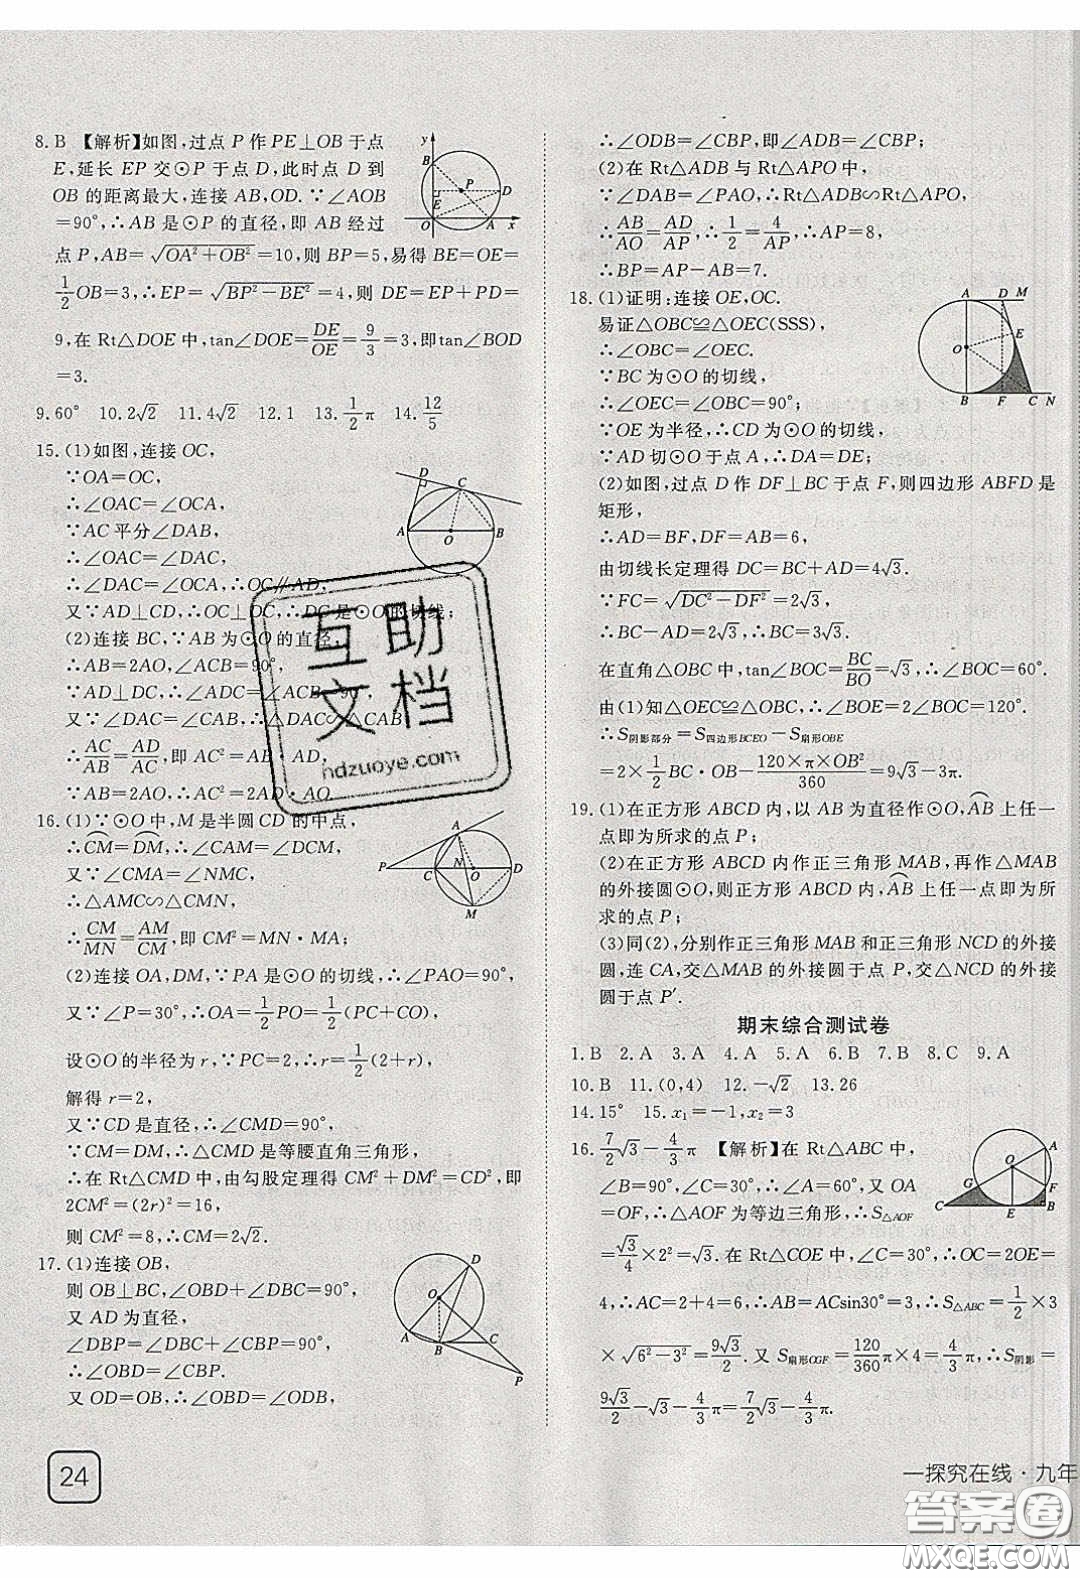 8.B 【解析】如图,过点 P 作 PE⊥OB 于点
E,延长 EP 交⊙P 于点 D,此时点 D 到
OB 的距离最大,连接 AB,OD.∵∠AOB
=90°,∴AB 是⊙P 的直径,即 AB 经过
点 P,AB=√(OA²+OB²)=10,则 BP=5,易得 BE=OE=
1/2 OB=3,∴EP=√(BP²-BE²)=4,则 DE=EP+PD=
9,在 Rt△DOE 中,tan∠DOE=DE/OE=9/3=3,即tan∠BOD
=3.
9.60° 10.2√2 11.4√2 12.1 13.1/2 π 14.12/5
15.(1)如图,连接 OC,
∵OA=OC,
∴∠OAC=∠OCA,
∵AC 平分∠DAB,
∴∠OAC=∠DAC,
∴∠DAC=∠OCA,∴OC∥AD,
又∵AD⊥CD,∴OC⊥DC,∴DC是⊙O 的切线;
(2)连接 BC,∵AB 为⊙O 的直径,
∴AB=2AO,∠ACB=90°,
∵AD⊥DC,∴∠ADC=∠ACB=90°,
又∵∠DAC=∠CAB,∴△DAC∽△CAB,
∴AC/AB=AD/AC,即 AC²=AB·AD,
∵AB=2AO,∴AC²=2AD·AO.
16.(1)∵⊙O 中,M 是半圆 CD 的中点,
∴⌒CM=⌒DM,∴∠CAM=∠DCM,
又∵∠CMA=∠NMC,
∴△AMC∽△CMN,
∴CM/MN=AM/CM,即 CM²=MN·MA;
(2)连接 OA,DM,∵PA 是⊙O 的切线,∴∠PAO=90°,
又∵∠P=30°,∴OA=1/2 PO=1/2(PC+CO),
设⊙O 的半径为 r,∵PC=2,∴r=1/2(2+r),
解得 r=2,
又∵CD 是直径,∴∠CMD=90°,
∵CM=DM,∴△CMD 是等腰直角三角形,
∴在 Rt△CMD 中,由勾股定理得 CM²+DM²=CD²,即
2CM²=(2r)²=16,
则 CM²=8,∴CM=2√2.
17.(1)连接 OB,
则 OB⊥BC,∠OBD+∠DBC=90°,
又 AD 为直径,
∠DBP=∠DBC+∠CBP=90°,
∴∠OBD=∠CBP,
又 OD=OB,∴∠OBD=∠ODB,
24
∴∠ODB=∠CBP,即∠ADB=∠CBP;
(2)在 Rt△ADB 与 Rt△APO 中,
∵∠DAB=∠PAO,∴Rt△ADB∽Rt△APO,
∴AB/AO=AD/AP,∴1/2=4/AP,∴AP=8,
∴BP=AP-AB=7.
18.(1)证明:连接 OE,OC.
易证△OBC≌△OEC(SSS),
∴∠OBC=∠OEC.
∵BC 为⊙O 的切线,
∴∠OEC=∠OBC=90°;
∵OE 为半径,∴CD 为⊙O 的切线,
∵AD 切⊙O 于点 A,∴DA=DE;
(2)如图,过点 D 作 DF⊥BC 于点 F,则四边形 ABFD 是
矩形,
∴AD=BF,DF=AB=6,
由切线长定理得 DC=BC+AD=4√3.
∵FC=√(DC²-DF²)=2√3,
∴BC-AD=2√3,∴BC=3√3.
在直角△OBC 中,tan∠BOC=BC/BO=√3,∴∠BOC=60°.
由(1)知△OEC≌△OBC,∴∠BOE=2∠BOC=120°.
∴S阴影部分=S四边形BCEO-S扇形OBE
=2×1/2 BC·OB-120×π×OB²/360=9√3-3π.
19.(1)在正方形 ABCD 内,以 AB 为直径作⊙O,⌒AB上任一
点即为所求的点 P;
(2)在正方形 ABCD 内作正三角形 MAB,再作△MAB
的外接圆⊙O,则正方形 ABCD 内,⌒AB上任一点即为所
求的点 P;
(3)同(2),分别作正三角形 MAB 和正三角形 NCD 的外接
圆,连 CA,交△MAB 的外接圆于点 P,交△NCD 的外接
圆于点 P′.
期末综合测试卷
1.B 2.A 3.A 4.A 5.A 6.B 7.B 8.C 9.A
10.B 11.(0,4) 12.-√2 13.26
14.15° 15.x₁=-1,x₂=3
16.7/2 √3-4/3 π 【解析】在 Rt△ABC 中,
∠B=90°,∠C=30°,∴∠A=60°,又 OA
=OF,∴△AOF 为等边三角形,∴S△AOF
=√3/4×2²=√3.在 Rt△COE 中,∠C=30°,∴OC=2OE=
4,∴AC=2+4=6,∴AB=ACsin30°=3,∴S△ABC=1/2×3
×√(6²-3²)=9√3/2.又 S扇形OGF=120/360 π×4=4/3 π,∴S阴影=
9√3/2-√3-4/3 π=7/2 √3-4/3 π.
一探究在线·九年
互助
文档
hdzuoye.com
答案圈
MXQE.COM